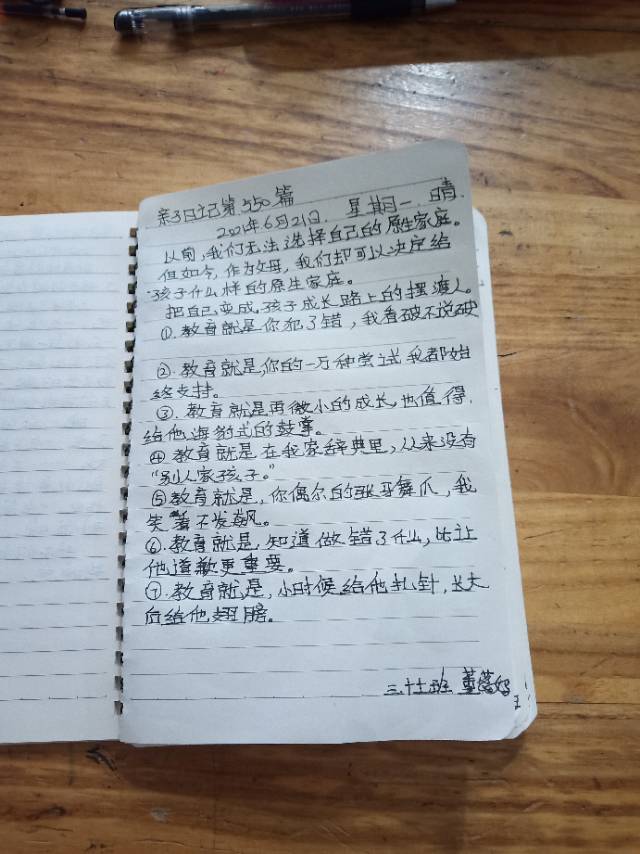 亲子日记第550篇
2021年6月21日. 星期一. 晴.
以前,我们无法选择自己的原生家庭。
但如今,作为父母,我们却可以决定给
孩子什么样的原生家庭。
把自己变成,孩子成长路上的摆渡人。
①.教育就是你犯了错,我看破不说破
②.教育就是,你的一万种尝试我都始
终支持。
③.教育就是再微小的成长也值得,
给他海豹式的鼓掌。
④教育就是在我家辞典里,从来没有
“别人家孩子。”
⑤教育就是,你偶尔的张牙舞爪,我
笑着不发飙。
⑥.教育就是,知道做错了什么,比让
他道歉更重要。
⑦.教育就是,小时候给他扎针,长大
后给他翅膀。
班